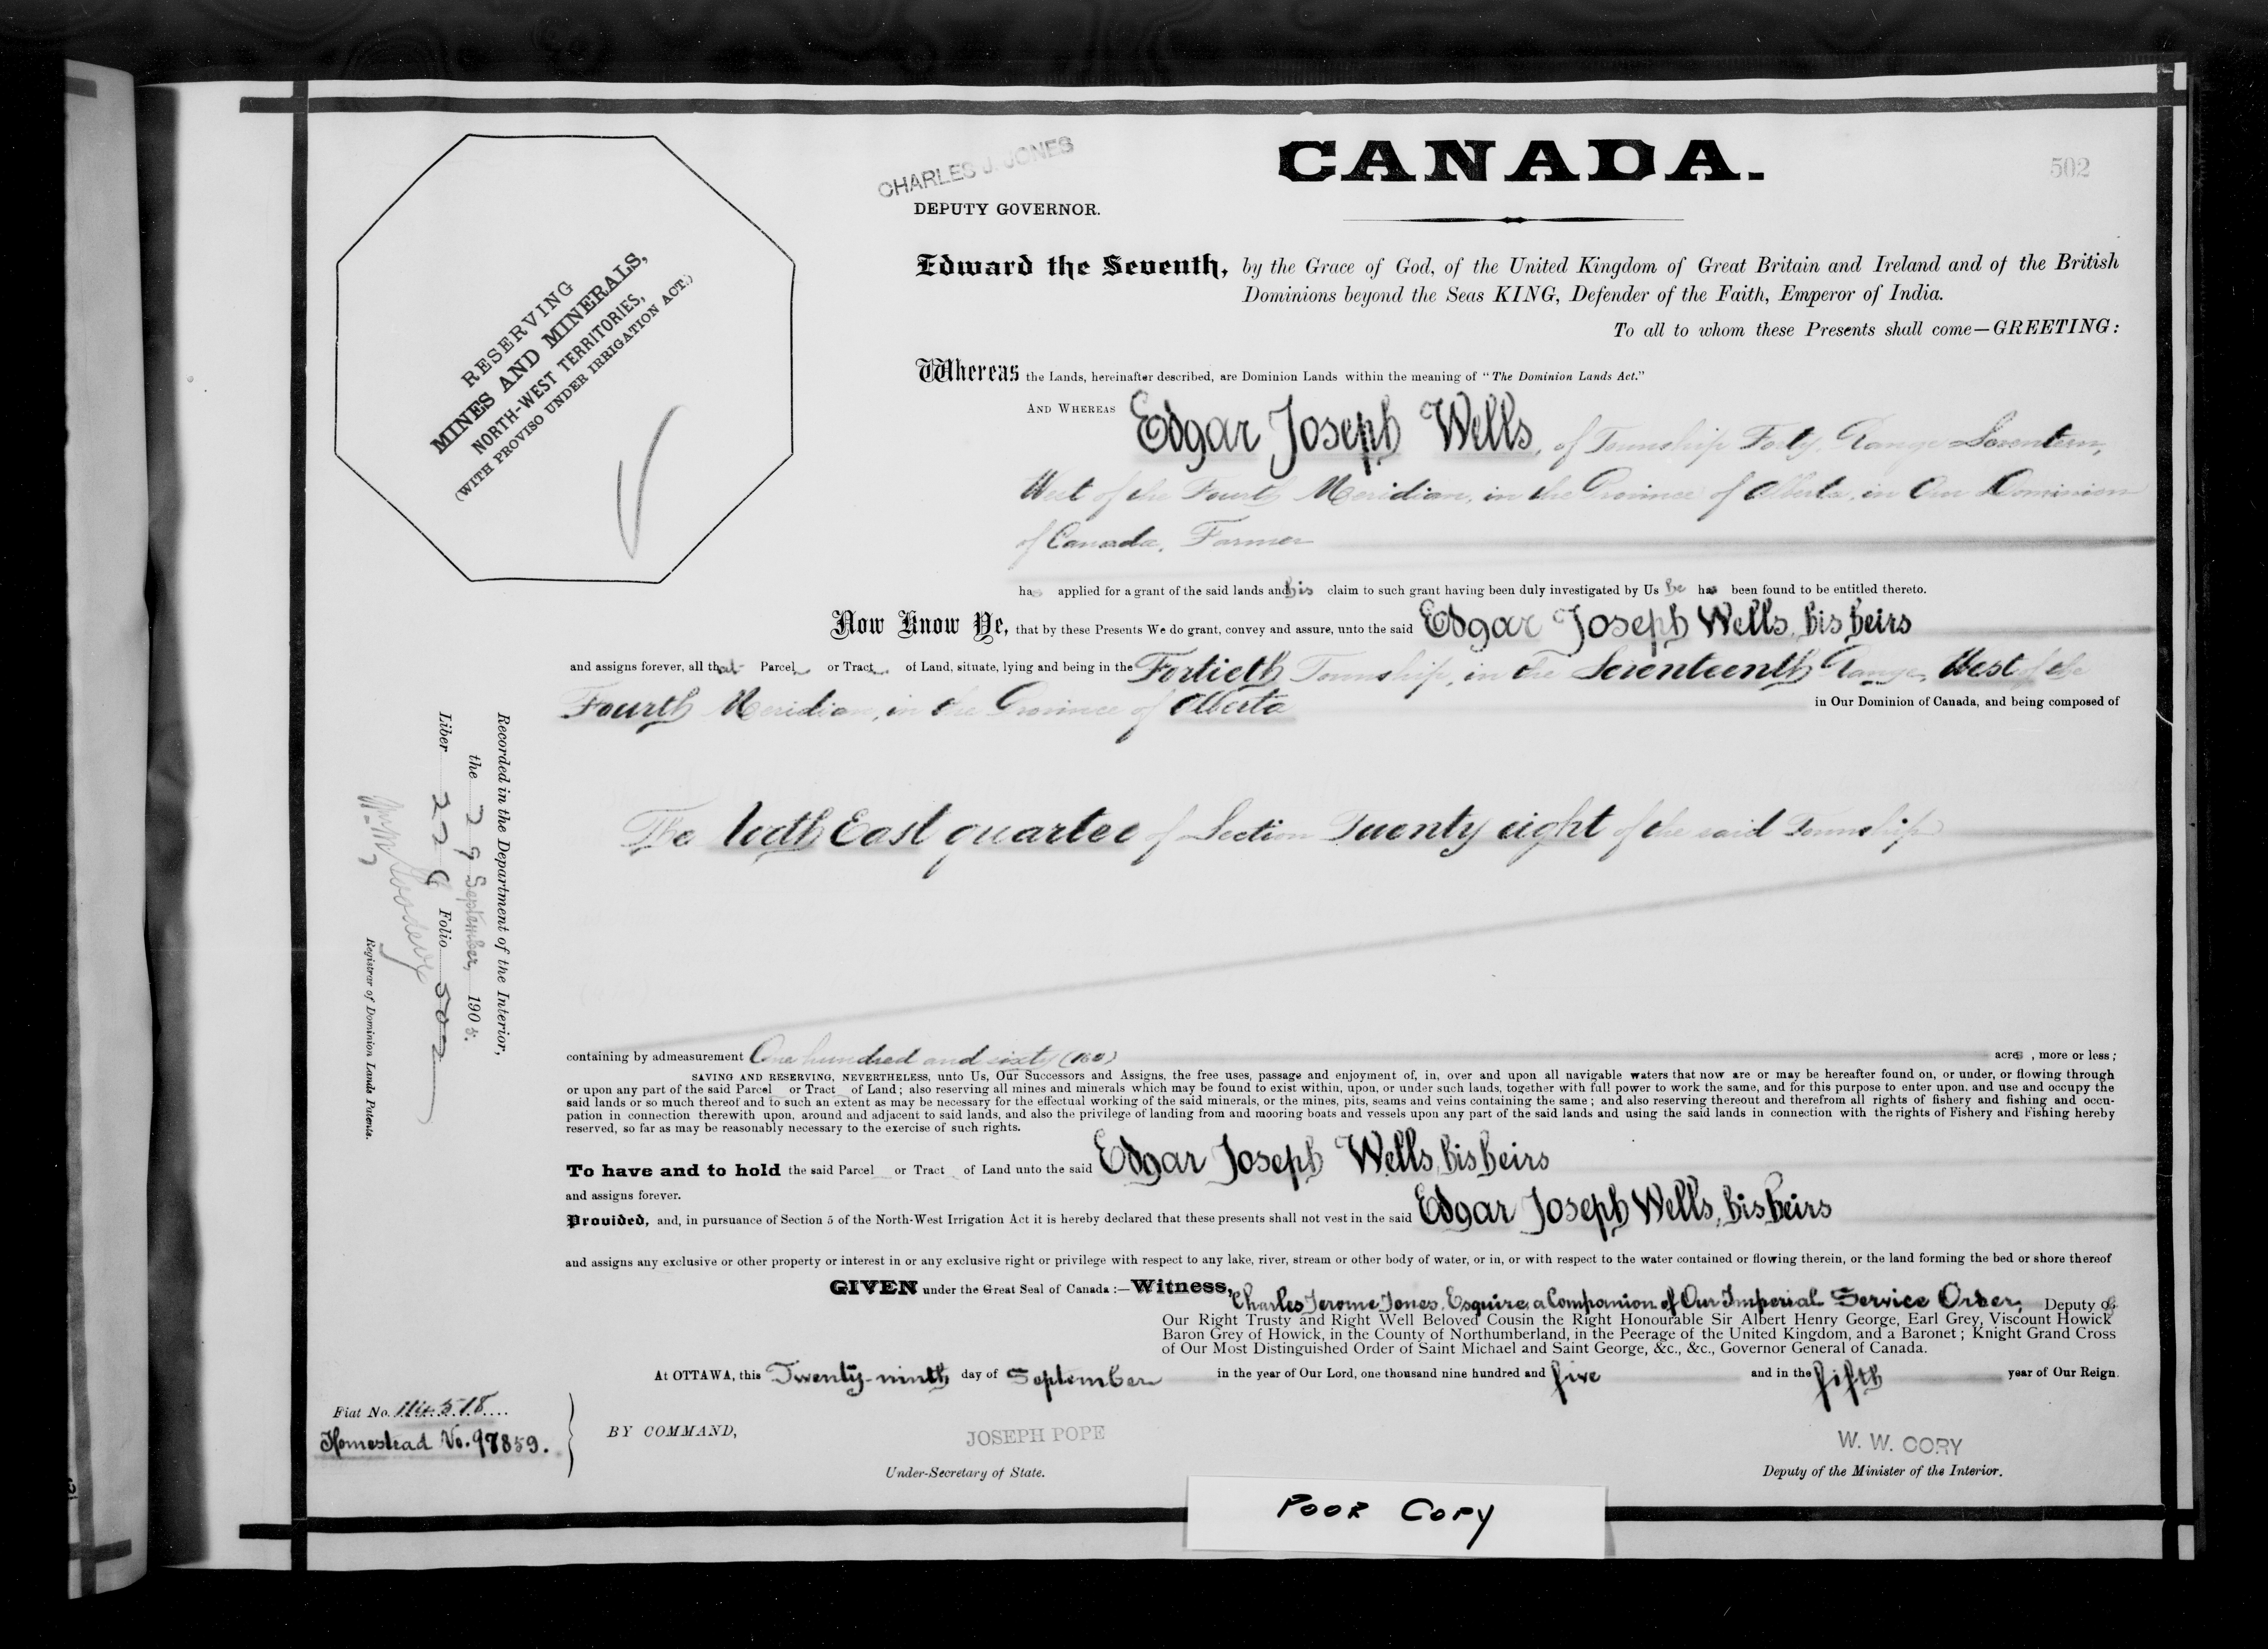 CHARLES J. JONES
DEPUTY GOVERNOR.
CANADA.
502
RESERVING
MINES AND MINERALS,
NORTH-WEST TERRITORIES,
(WITH PROVISO UNDER IRRIGATION ACT.)
Edward the Seventh, by the Grace of God, of the United Kingdom of Great Britain and Ireland and of the British
Dominions beyond the Seas KING, Defender of the Faith, Emperor of India.
To all to whom these Presents shall come—GREETING:
Whereas the Lands, hereinafter described, are Dominion Lands within the meaning of "The Dominion Lands Act."
AND WHEREAS Edgar Joseph Wells, of Township Forty, Range Seventeen,
West of the Fourth Meridian, in the Province of Alberta, in Our Dominion
of Canada, Farmer
has applied for a grant of the said lands and his claim to such grant having been duly investigated by Us he has been found to be entitled thereto.
Now Know Ye, that by these Presents We do grant, convey and assure, unto the said Edgar Joseph Wells, his heirs
and assigns forever, all that Parcel or Tract of Land, situate, lying and being in the Fortieth Township, in the Seventeenth Range, West of the
Fourth Meridian, in the Province of Alberta in Our Dominion of Canada, and being composed of
The East quarter of Section Twenty eight of the said Township
containing by admeasurement One hundred and sixty (160) acres, more or less;
SAVING AND RESERVING, NEVERTHELESS, unto Us, Our Successors and Assigns, the free uses, passage and enjoyment of, in, over and upon all navigable waters that now are or may be hereafter found on, or under, or flowing through
or upon any part of the said Parcel or Tract of Land; also reserving all mines and minerals which may be found to exist within, upon, or under such lands, together with full power to work the same, and for this purpose to enter upon, and use and occupy the
said lands or so much thereof and to such an extent as may be necessary for the effectual working of the said minerals, or the mines, pits, seams and veins containing the same; and also reserving thereout and therefrom all rights of fishery and fishing and occu-
pation in connection therewith upon, around and adjacent to said lands, and also the privilege of landing from and mooring boats and vessels upon any part of the said lands and using the said lands in connection with the rights of Fishery and Fishing hereby
reserved, so far as may be reasonably necessary to the exercise of such rights.
To have and to hold the said Parcel or Tract of Land unto the said Edgar Joseph Wells, his heirs
and assigns forever.
Provided, and, in pursuance of Section 5 of the North-West Irrigation Act it is hereby declared that these presents shall not vest in the said Edgar Joseph Wells, his heirs
and assigns any exclusive or other property or interest in or any exclusive right or privilege with respect to any lake, river, stream or other body of water, or in, or with respect to the water contained or flowing therein, or the land forming the bed or shore thereof
GIVEN under the Great Seal of Canada:—Witness, Charles Jerome Jones, Esquire, a Companion of Our Imperial Service Order, Deputy of
Our Right Trusty and Right Well Beloved Cousin the Right Honourable Sir Albert Henry George, Earl Grey, Viscount Howick
Baron Grey of Howick, in the County of Northumberland, in the Peerage of the United Kingdom, and a Baronet; Knight Grand Cross
of Our Most Distinguished Order of Saint Michael and Saint George, &c., &c., Governor General of Canada.
At OTTAWA, this Twenty-ninth day of September in the year of Our Lord, one thousand nine hundred and five and in the fifth year of Our Reign.
Fiat No. 114518
Homestead No. 97859.
BY COMMAND,
JOSEPH POPE
Under-Secretary of State.
W. W. CORY
Deputy of the Minister of the Interior.
Recorded in the Department of the Interior,
the 29 September, 1905.
Liber 229 Folio 502
Registrar of Dominion Lands Patents.
POOR COPY